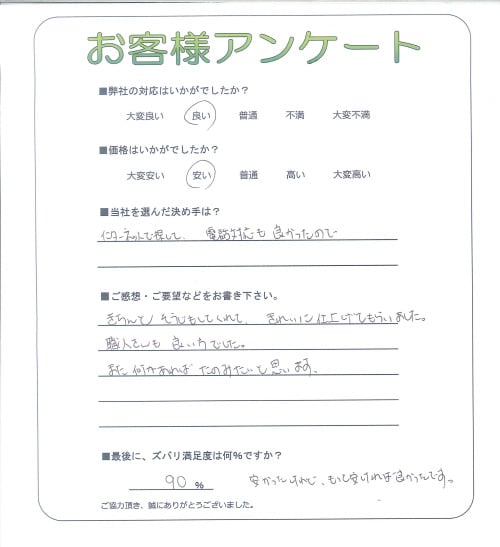 お客様アンケート
■弊社の対応はいかがでしたか？
大変良い 良い 普通 不満 大変不満
■価格はいかがでしたか？
大変安い 安い 普通 高い 大変高い
■当社を選んだ決め手は？
インターネットで探して、電話対応も良かったので
■ご感想・ご要望などをお書き下さい。
きちんとそうじもしてくれて、きれいに仕上げてもらいました。
職人さんも良い人でした。
また何かあればたのみたいと思います。
■最後に、ズバリ満足度は何％ですか？
90 % 安かったけれど、もっと安ければ良かったです。
ご協力頂き、誠にありがとうございました。